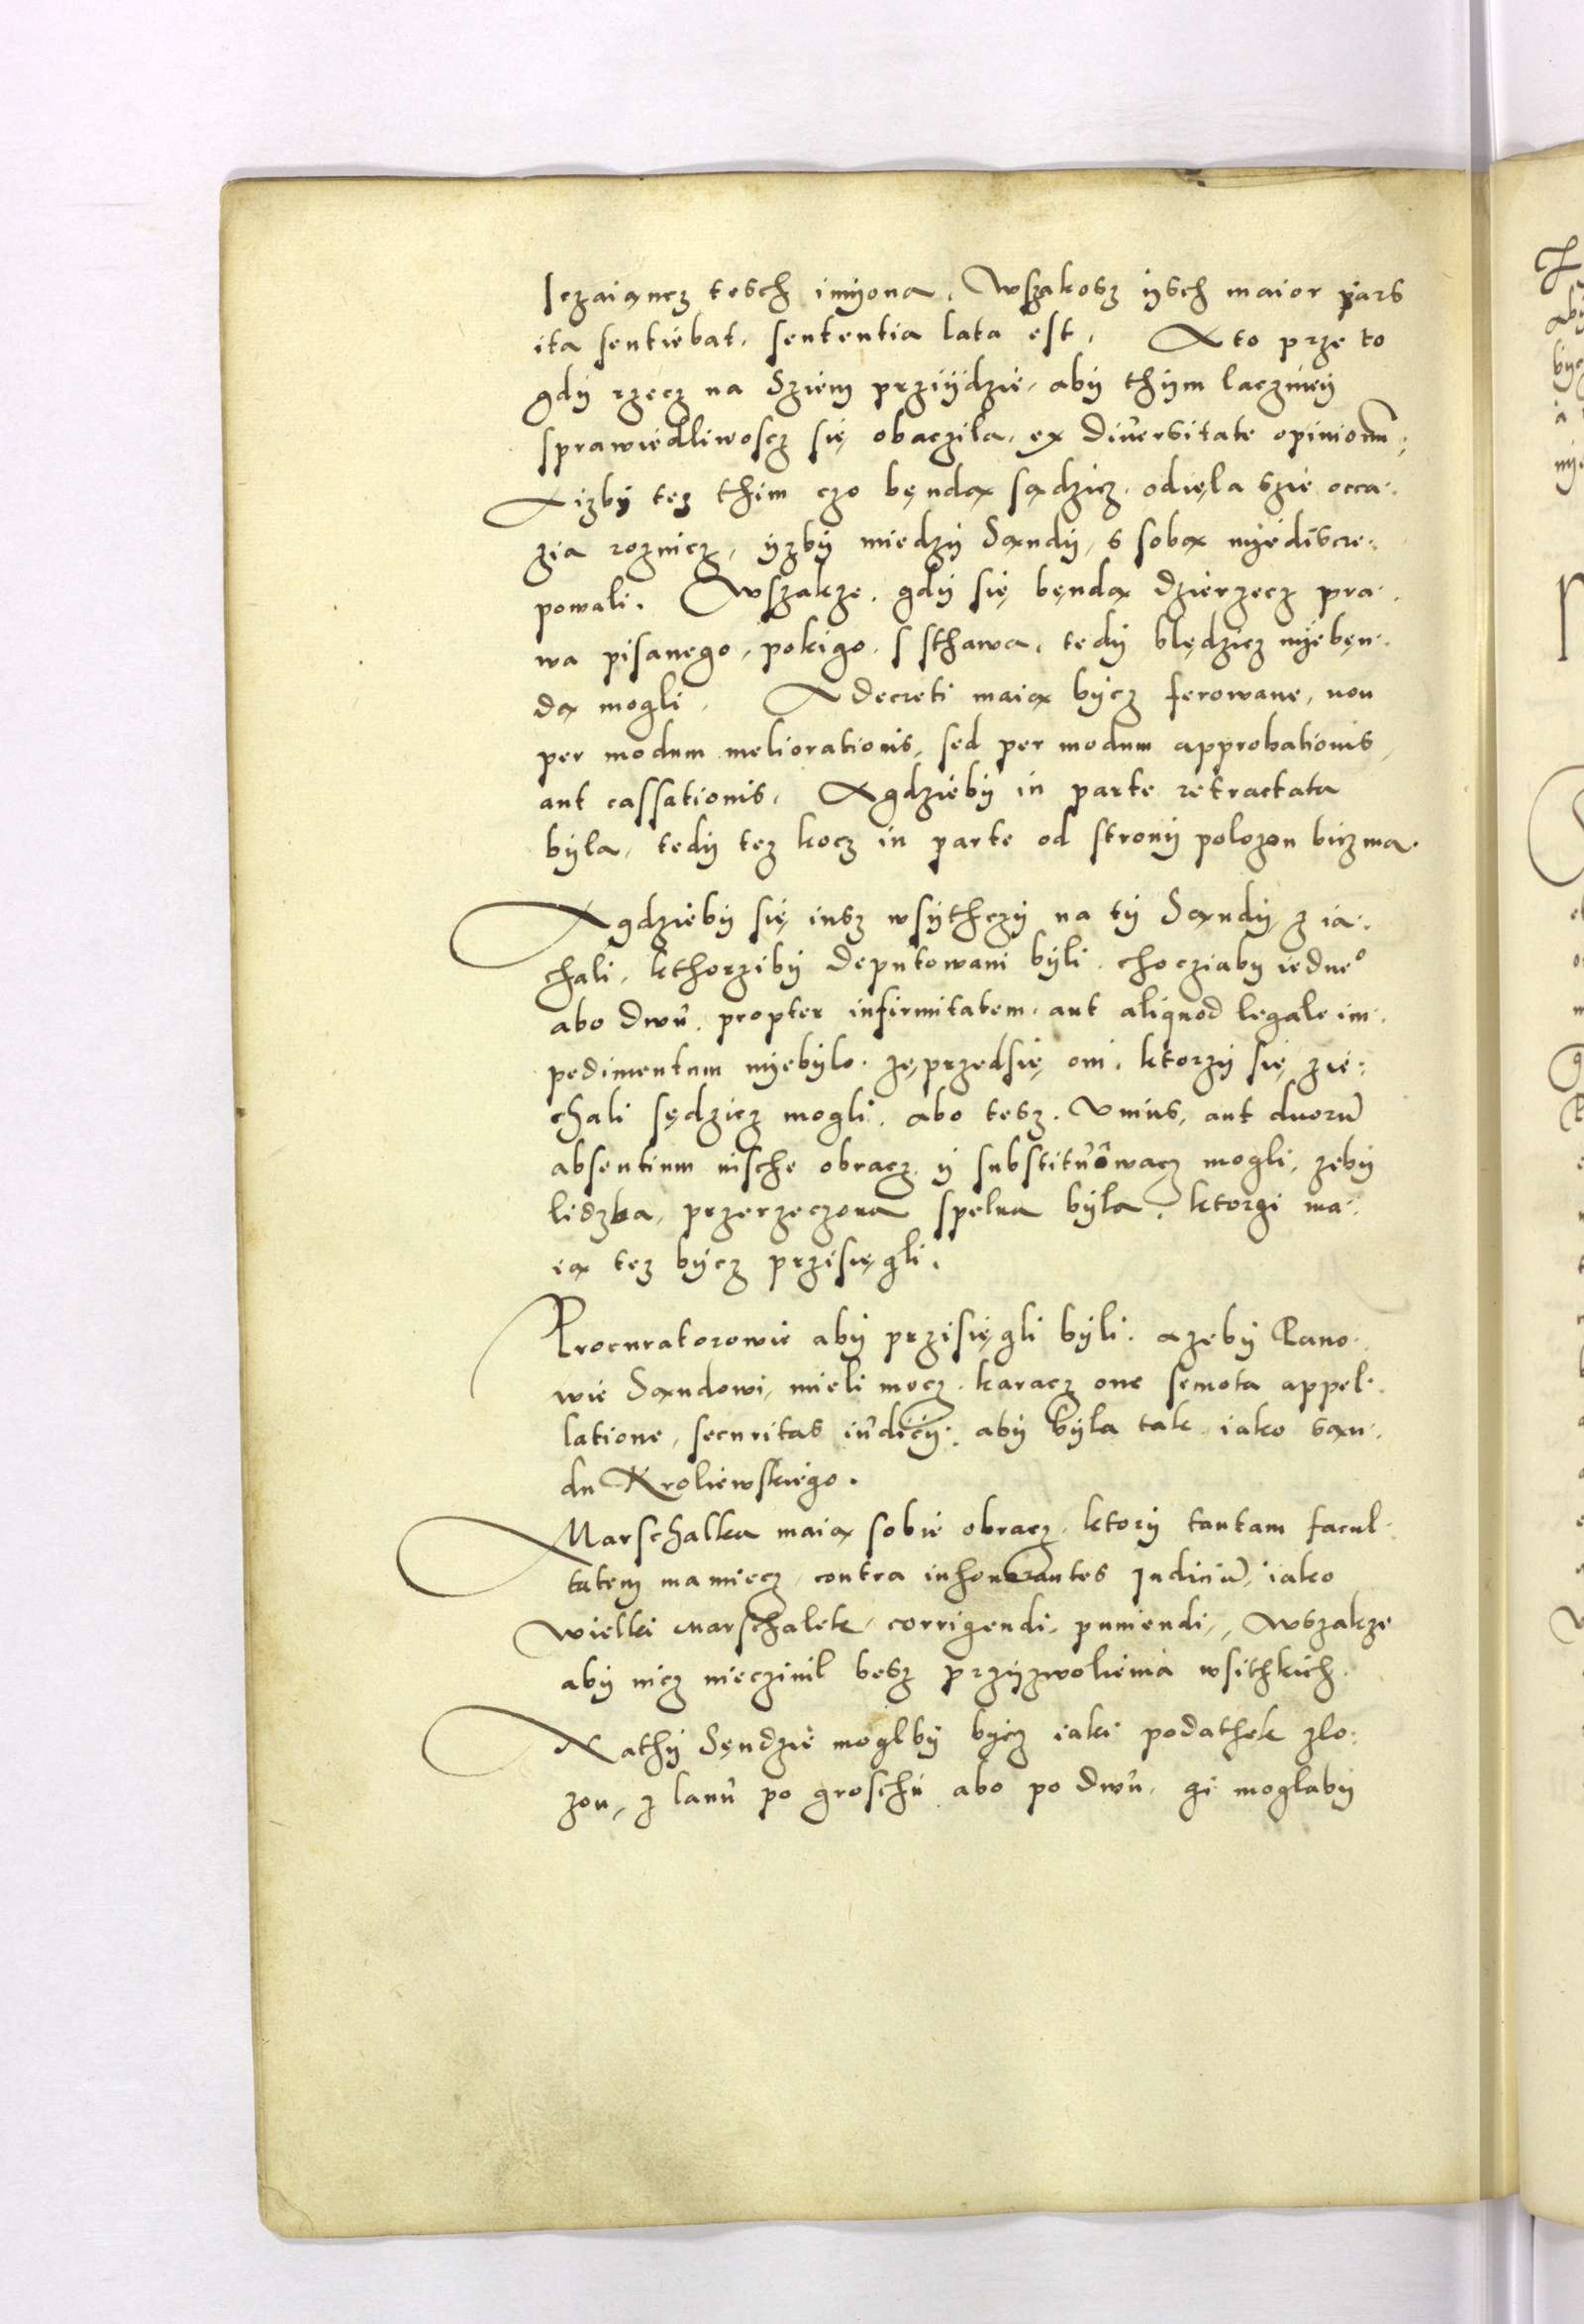 sczaiąncz tesch imÿona. Wszakosz ÿsch maior pars
ita sentiebat, sententia lata est. A to prze to
gdÿ rzecz na Sziem prziÿdzie, abÿ thÿm lacznieÿ
sprawiedliwoscz się obacziła, ex diuersitate opinionũ:
A izbÿ tez thim czo będą sądzicz, odięla szie occa:
zia roznicz, ÿzbÿ miedzÿ Sandÿ, s sobą nÿediscre:
powali. Wszakze, gdÿ się będą dzierzecz pra:
wa pisanego, pokigo, s sthawa, tedÿ blędzicz nÿebęn:
dą mogli. A decreti maią bÿcz ferowane, non
per modum meliorationis, sed per modum approbationis,
aut cassationis. A gdziebÿ in parte retractata
bÿla, tedÿ tez kocz in parte od stronÿ polozon bicz ma.
A gdziebÿ się insz wsÿthczÿ na tÿ Sandÿ z ia:
chali, kthorzibÿ deputowani bÿli, chocziaby iedneº
abo dwu, propter infirmitatem, aut aliquod legale im:
pedimentum nÿebÿlo, zę przedsię oni, ktorzÿ się zie:
chali sędzicz mogli, abo tesz, vnius, aut duorũ
absentium insche obracz ÿ substituowacz mogli, zebÿ
lidzba, przerzeczona spelna bÿla, ktorzi ma:
ią tez bÿcz przisięgli.
Procuratorowie abÿ przisięgli bÿli, a zebÿ Pano:
wie Sandowi, mieli mocz, karacz one semota appel:
latione, securitas iudicÿ, abÿ bÿla tak iako san:
du Kroliewskiego.
Marschalka maią sobie obracz, ktorÿ tantam facul:
tatem ma miecz, contra inhonorantes Iudiciũ, iako
wielki Marschalek, corrigendi, puniendi, wszakze
abÿ nicz nieczinil besz przÿzwolienia wsithkich.
Na thÿ Sędzie moglbÿ bÿcz iaki podathek zlo:
zon, z lanu po groschu abo po dwu, gi moglabÿ